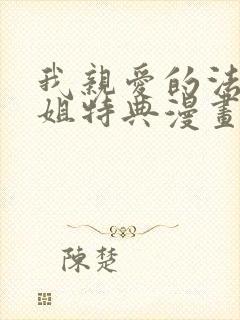 我親愛的法
姐特典漫畫
陳楚